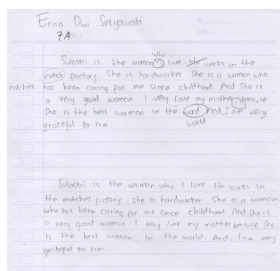 Erna Dwi Setyawati
7A
Sulastri is the woman who I love. He works in the
match factory. She is hardworker She is a woman who
matches
has been caring for me since childhood. And she is
a very good woman I very love my mother because
she is the best woman in the word And, I am very
world
grateful to him.
Sulastri is the woman who I love He looks in
the matches pictory she is hardworker She is a woman
who has been caring for me since childhood And she is
a very good woman I very love my mother because she
is the best woman in the world. And, I am very
grateful to him.